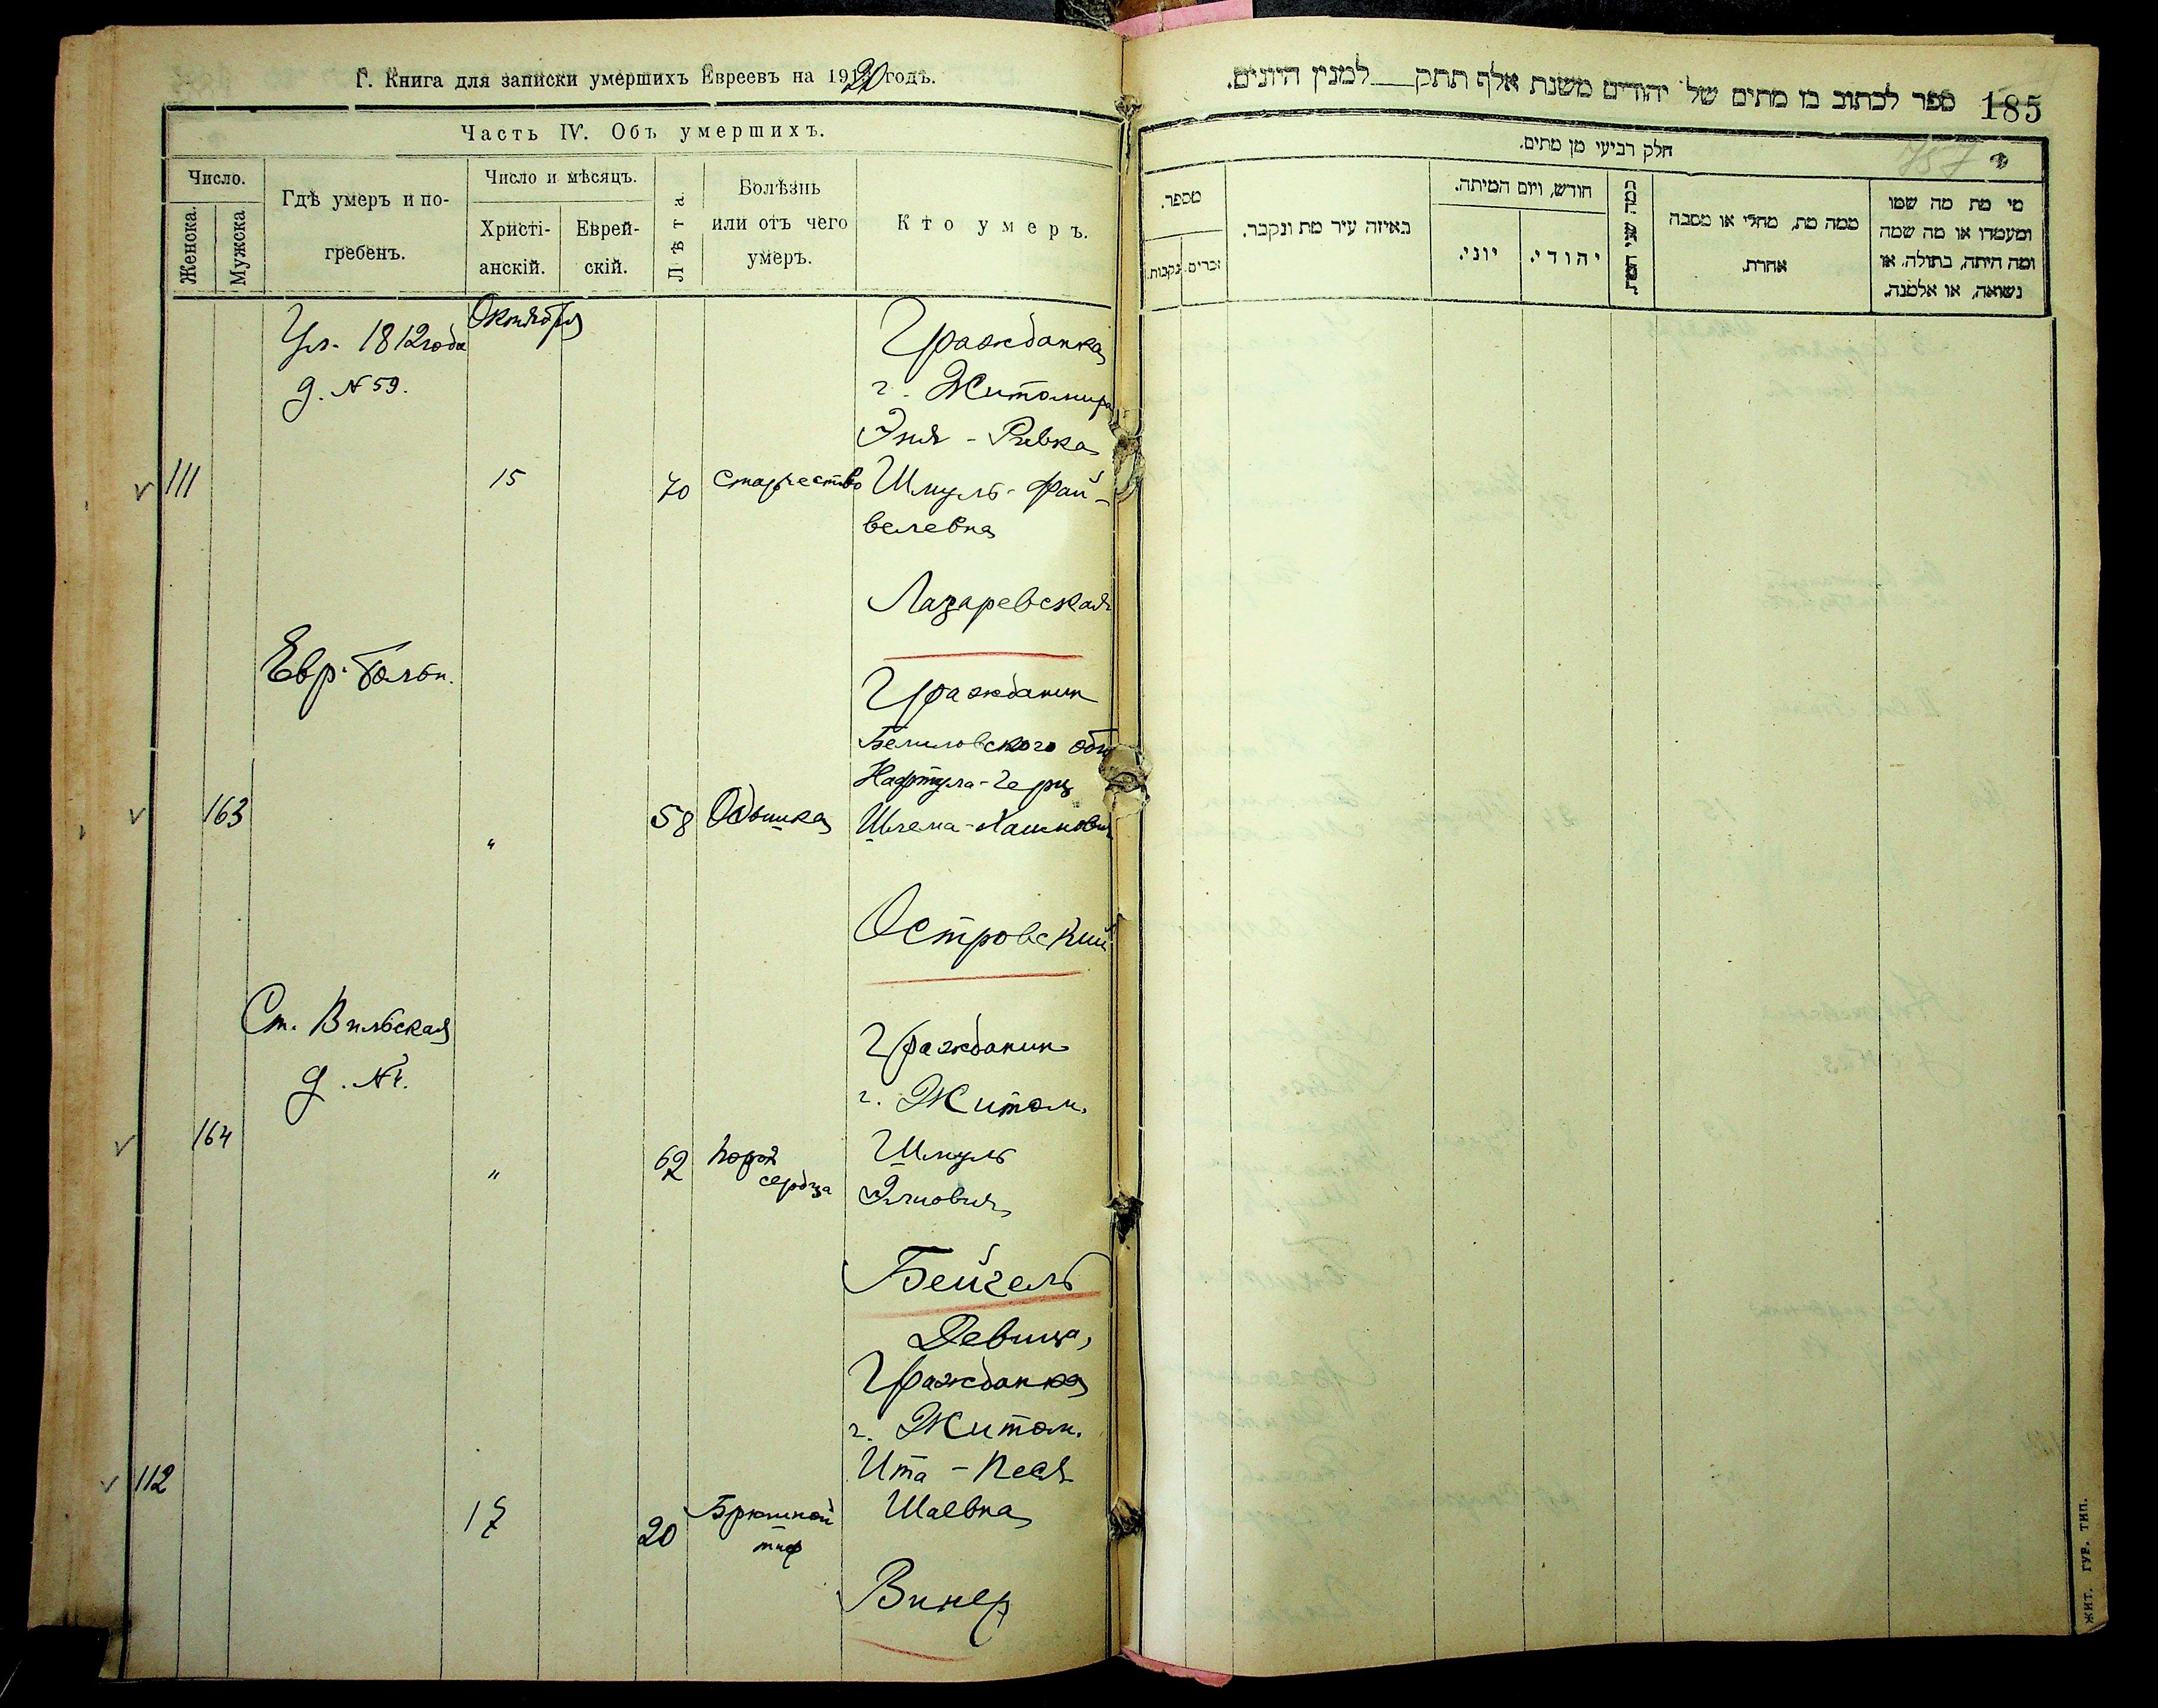 Г. Книга для записки умершихъ Евреевъ на 1920 годъ.
Часть IV. Объ умершихъ.
Число.
Женска.
Мужска
Гдѣ умеръ и по-
гребенъ.
Число и мѣсяцъ.
Христі-
анскій.
Еврей-
скій.
Лѣта.
Болѣзнь
или отъ чего
умеръ.
Кто умеръ.
Ул. 1812 года
д. № 59.
Октября
111
15
70
Старчество
Гражданка
г. Житомира
Эня - Ривка
Шмуль - Фай-
велевна
Лазаревская
Евр. больн.
163
"
58
Одышка
Гражданин
Белиловского общ
Нафтула - Герц
Шлема - Хаимович
Островский
Ст. Вильская
д. № 4.
164
"
62
порок
сердца
Гражданин
г. Житом.
Шмуль
Элиович
Бейгель
112
17
20
Брюшной
тиф
Девица,
Гражданка
г. Житом.
Ита - Песя
Шаевна
Винер
185
ספר לכתוב בו מתים של יהודים משנת אלף תתק למנין היונים.
757
חלק רביעי מן מתים.
מספר.
זכרים.
נקבות.
באיזה עיר מת ונקבר.
חודש, ויום המיתה.
יוני.
יהודי.
כמה שני המת
ממה מת, מחלי או מסבה
אחרת.
מי מת מה שמו
ומעמדו או מה שמה
ומה היתה, בתולה, או
נשואה, או אלמנה.
ЖИТ. ГУБ. ТИП.